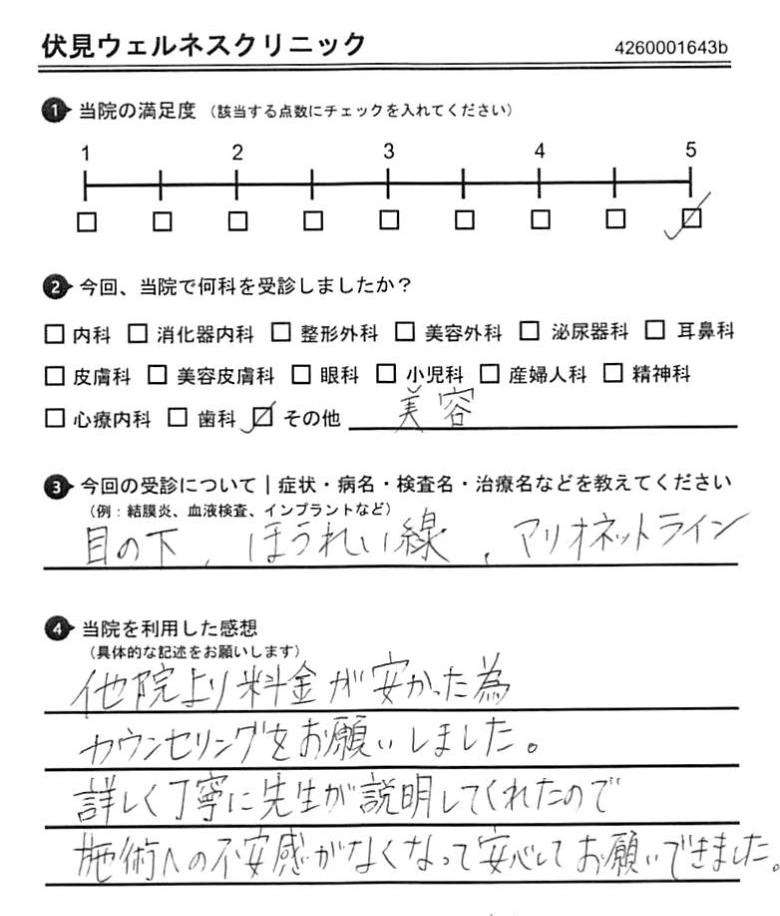 伏見ウェルネスクリニック 4260001643b
1 当院の満足度 （該当する点数にチェックを入れてください）
1 2 3 4 5
2 今回、当院で何科を受診しましたか？
内科 消化器内科 整形外科 美容外科 泌尿器科 耳鼻科
皮膚科 美容皮膚科 眼科 小児科 産婦人科 精神科
心療内科 歯科 その他 美容
3 今回の受診について | 症状・病名・検査名・治療名などを教えてください
（例：結膜炎、血液検査、インプラントなど）
目の下、ほうれい線、マリオネットライン
4 当院を利用した感想
（具体的な記述をお願いします）
他院より料金が安かった為
カウンセリングをお願いしました。
詳しく丁寧に先生が説明してくれたので
施術への不安感がなくなって安心してお願いできました。